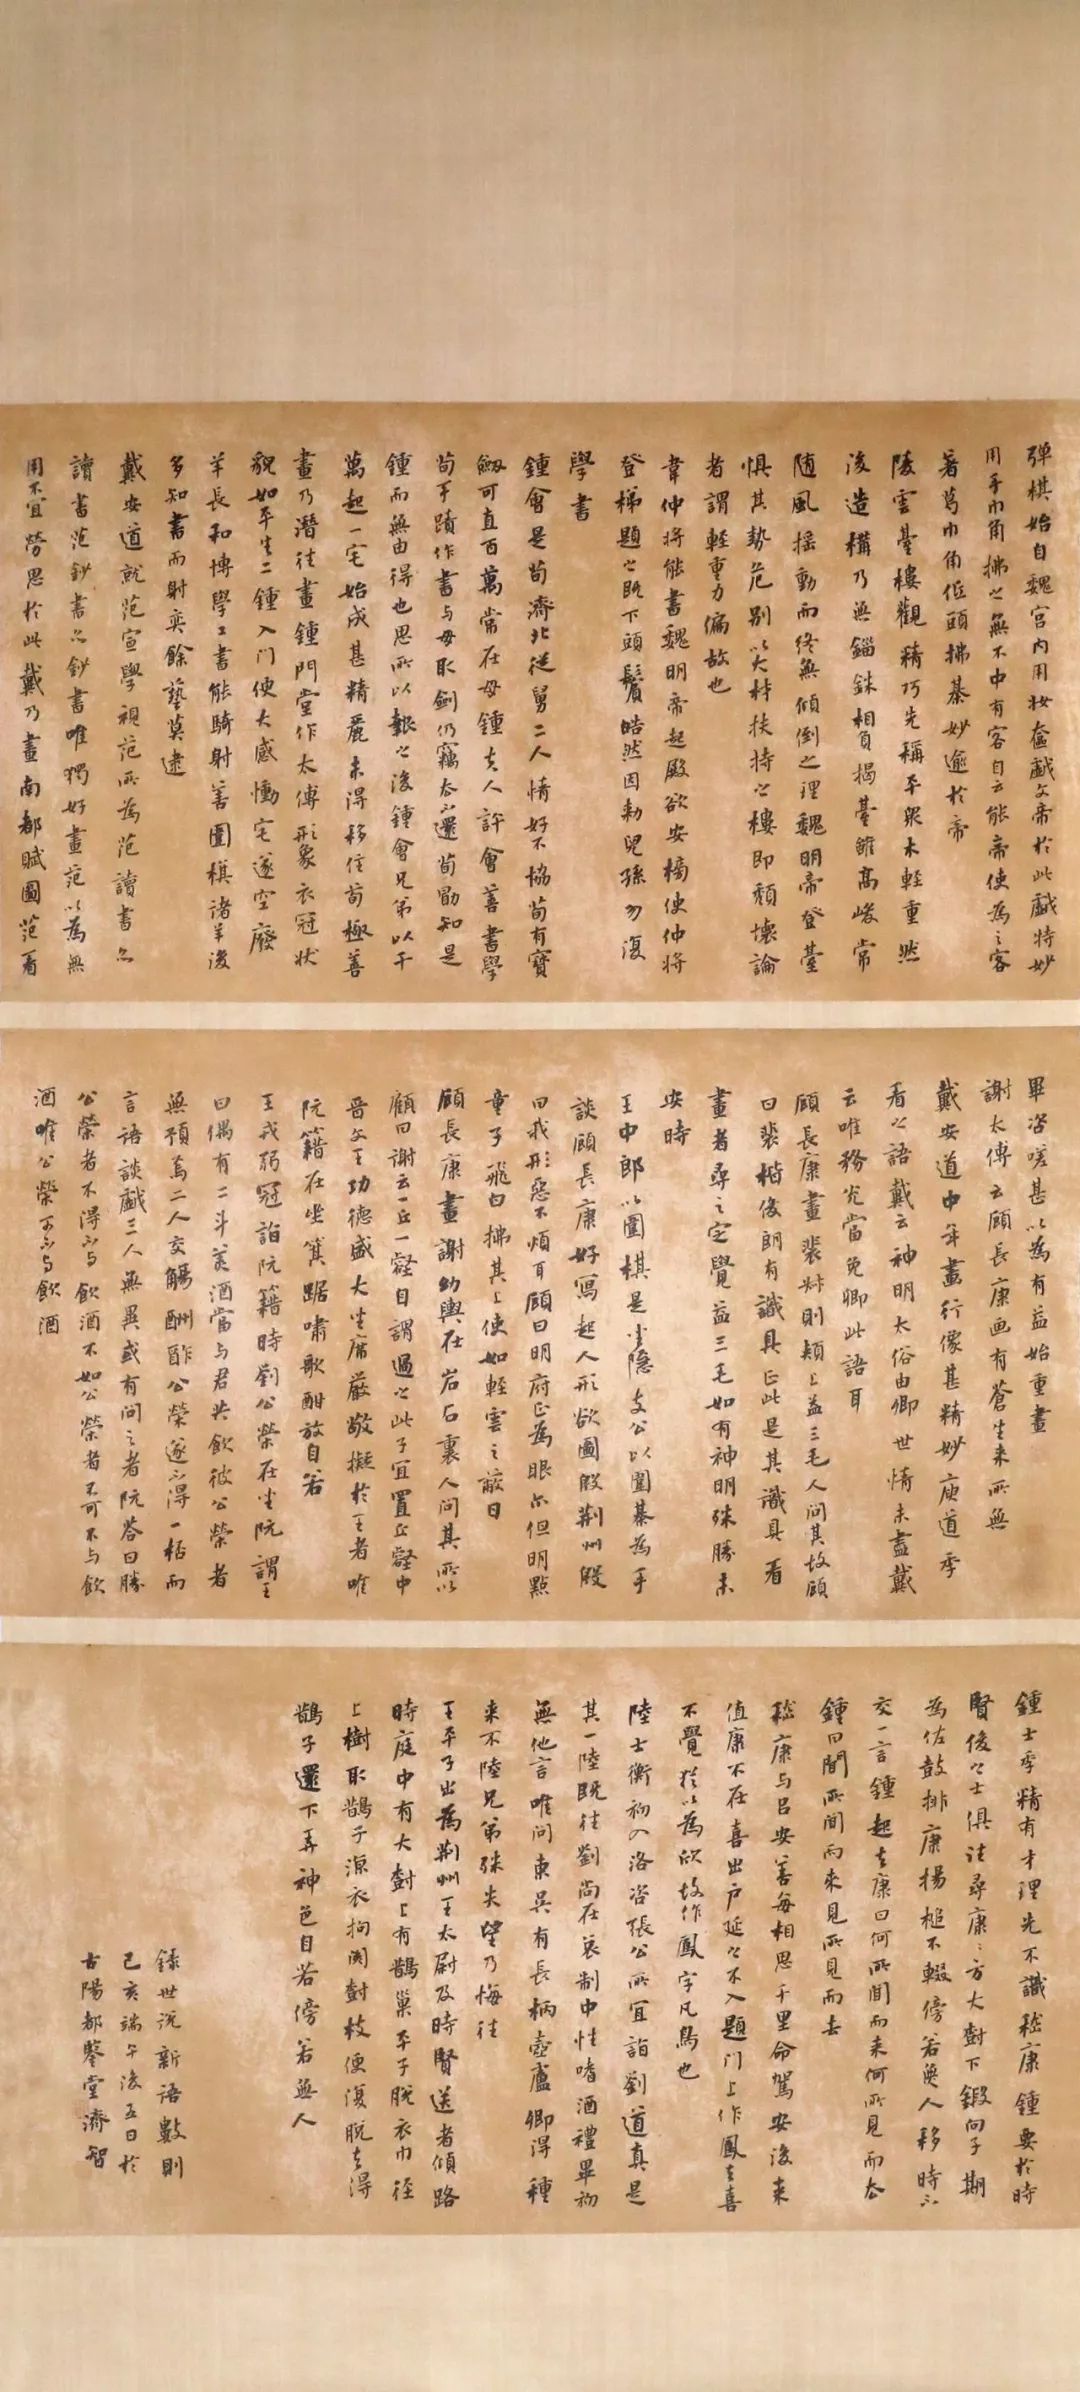 弹棋始自魏宫内用妆奩戯文帝於此戯特妙
用手巾角拂之無不中有客自云能帝使為之客
著葛巾角低頭拂棊妙逾於帝
陵雲臺樓觀精巧先稱平眾木輕重然
後造構乃無錙銖相負揭臺雖高峻常
随風摇動而终無傾倒之理魏明帝登臺
惧其勢危别以大材扶持之樓即頹壞論
者謂輕重力偏故也
韋仲将能書魏明帝起殿欲安榜使仲将
登梯題之既下頭鬢皓然因勅兒孫勿復
學書
鍾會是荀濟北従舅二人情好不協荀有寶
劔可直百萬常在母鍾夫人許會善書學
荀手蹟作書与母取劍仍竊去不還荀勖知是
鍾而無由得也思所以報之後鍾會兄弟以千
萬起一宅始成甚精麗未得移住荀極善
畫乃潜往畫鍾門堂作太傅形象衣冠状
貌如平生二鍾入门便大感慟宅遂空廢
羊長和博學工書能騎射善圍棋諸羊後
多知書而射奕餘藝莫逮
戴安道就范宣學視范所為范讀書亦
讀書范鈔書亦鈔書唯獨好畫范以為無
用不宜勞思於此戴乃畫南都賦圖范看
畢咨嗟甚以為有益始重畫
謝太傅云顧長康画有蒼生来所無
戴安道中年畫行像甚精妙庾道季
看之語戴云神明太俗由卿世情未盡戴
云唯務光當免卿此語耳
顧長康畫裴叔則頬上益三毛人問其故顧
曰裴楷俊朗有識具正此是其識具看
畫者尋之定覺益三毛如有神明殊勝未
安時
王中郎以圍棋是坐隱支公以圍棊為手
談顧長康好寫起人形欲圖殷荆州殷
曰我形惡不煩耳顧曰明府正為眼尔但明點
童子飛白拂其上使如輕雲之蔽日
顧長康畫謝幼輿在岩石裏人問其所以
顧曰謝云一丘一壑自謂過之此子宜置丘壑中
晉文王功德盛大坐席嚴敬擬於王者唯
阮籍在坐箕踞嘯歌酣放自若
王戎弱冠詣阮籍時劉公榮在坐阮謂王
曰偶有二斗美酒當与君共飲彼公榮者
無預焉二人交觴酬酢公榮遂不得一桮而
言語談戯三人無異或有問之者阮答曰勝
公榮者不得不与飲酒不如公榮者不可不与飲
酒唯公榮可不与飲酒
鍾士季精有才理先不識嵇康鍾要於時
賢俊之士俱往尋康康方大樹下鍛向子期
為佐鼓排康揚槌不輟傍若無人移時不
交一言鍾起去康曰何所聞而来何所見而去
鍾曰聞所聞而來見所見而去
嵇康与吕安善每相思千里命駕安後来
值康不在喜出户延之不入題门上作鳳去喜
不覺猶以為欣故作鳳字凡鳥也
陸士衡初入洛咨張公所宜詣劉道真是
其一陸既往劉尚在哀制中性嗜酒禮畢初
無他言唯問東吳有長柄壺盧卿得種
来不陸兄弟殊失望乃悔往
王平子出為荆州王太尉及時賢送者傾路
時庭中有大樹上有鵲巢平子脱衣巾徑
上樹取鵲子凉衣拘閡樹枝便復脱去得
鵲子還下弄神色自若傍若無人
錄世説新语數則
己亥端午後五日於
古陽都鑒堂濟智